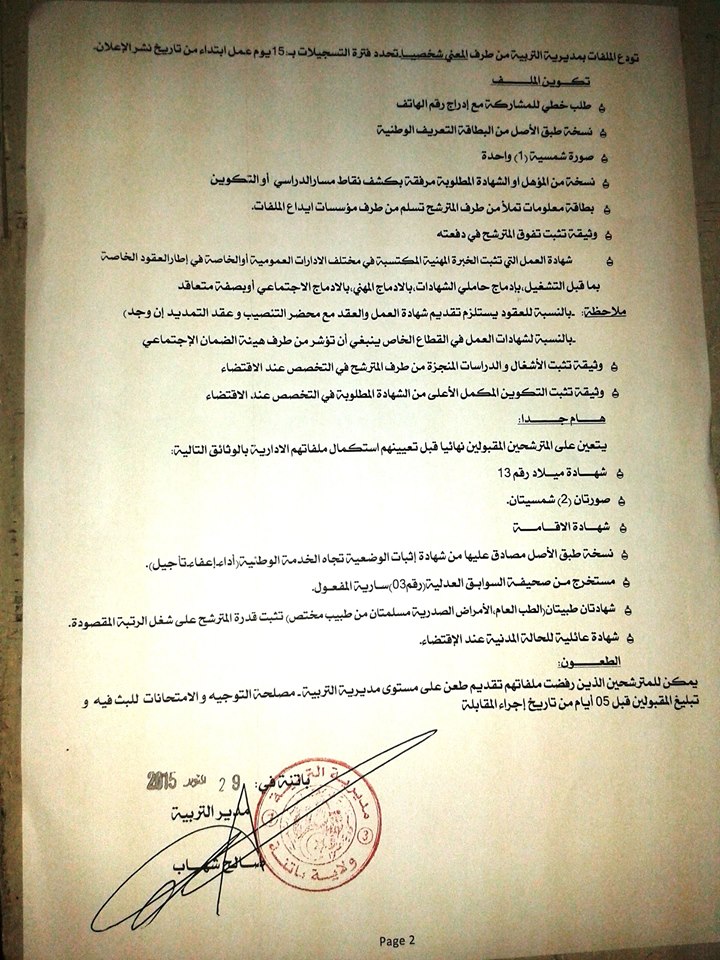 تودع الملفات بمديرية التربية من طرف المعني شخصيا.تحدد فترة التسجيلات بـ:15يوم عمل ابتداء من تاريخ نشر الإعلان.
تكـــوين الملـــف
طلب خطي للمشاركة مع إدراج رقم الهاتف
نسخة طبق الأصل من البطاقة التعريف الوطنية
صورة شمسية (1) واحدة
نسخة من المؤهل أو الشهادة المطلوبة مرفقة بكشف نقاط مسارالدراسي أو التكوين
بطاقة معلومات تملأ من طرف المترشح تسلم من طرف مؤسسات ايداع الملفات.
وثيقة تثبت تفوق المترشح في دفعته
شهادة العمل التي تثبت الخبرة المهنية المكتسبة في مختلف الادارات العمومية أوالخاصة في إطارالعقود الخاصة
بما قبل التشغيل،بإدماج حاملي الشهادات،بالادماج المهني،بالادماج الاجتماعي أوبصفة متعاقد
ملاحظة: ـبالنسبة للعقود يستلزم تقديم شهادة العمل والعقد مع محضر التنصيب و عقد التمديد إن وجد)
ـبالنسبة لشهادات العمل في القطاع الخاص ينبغي أن تؤشر من طرف هيئة الضمان الإجتماعي
وثيقة تثبت الأشغال و الدراسات المنجزة من طرف المترشح في التخصص عند الاقتضاء
وثيقة تثبت التكوين المكمل الأعلى من الشهادة المطلوبة في التخصص عند الاقتضاء
هـــام جـــدا:
يتعين على المترشحين المقبولين نهائيا قبل تعيينهم استكمال ملفاتهم الادارية بالوثائق التالية:
شهـادة ميـلاد رقم 13
صورتان (2) شمسيتان.
شهـادة الاقـامـــة
نسخة طبق الأصل مصادق عليها من شهادة إثبات الوضعية تجاه الخدمة الوطنية(أداء،إعفاء،تأجيل).
مستخرج من صحيفة السوابق العدلية(رقم03)سارية المفعول.
شهادتان طبيتان(الطب العام،الأمراض الصدرية مسلمتان من طبيب مختص) تثبت قدرة المترشح على شغل الرتبة المقصودة.
شهادة عائلية للحالة المدنية عند الإقتضاء.
الطعـــون:
يمكن للمترشحين الذين رفضت ملفاتهم تقديم طعن على مستوى مديرية التربية ـ مصلحة التوجيه و الامتحانات للبث فيه و
تبليغ المقبولين قبل 05 أيام من تاريخ إجراء المقابلة
باتنة في: 29 2015
مدير التربية
صالح شهاب
مديرية التربية
ولاية باتنة
3
Page 2